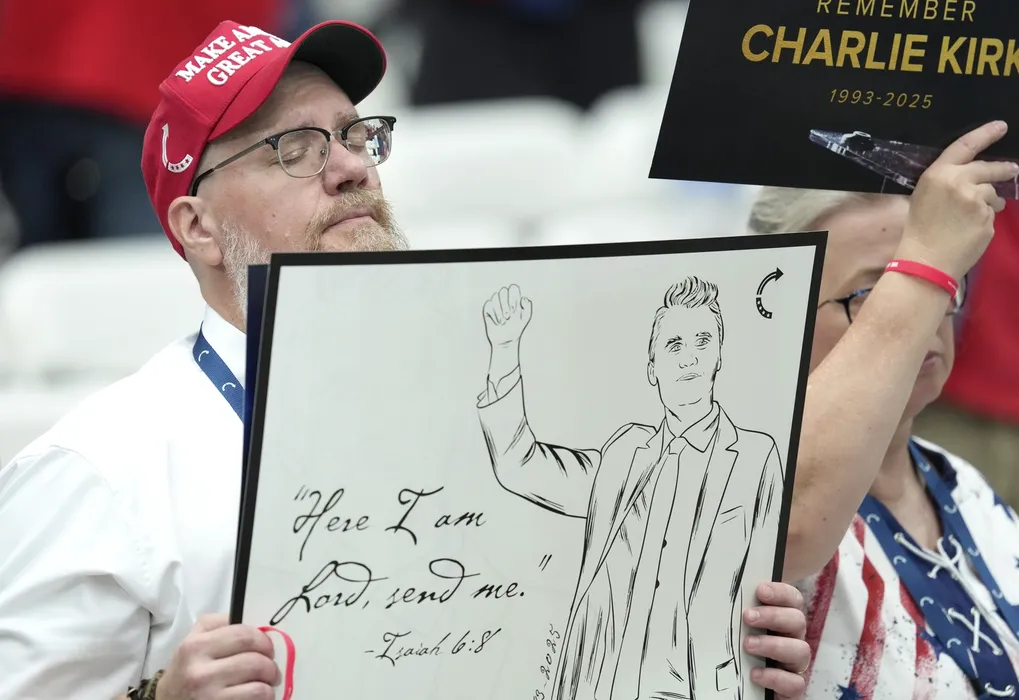 MAKE AM
GREAT A
REMEMBER
CHARLIE KIRK
1993-2025
"Here I am
Lord, send me."
-Isaiah 6:8
3 2025